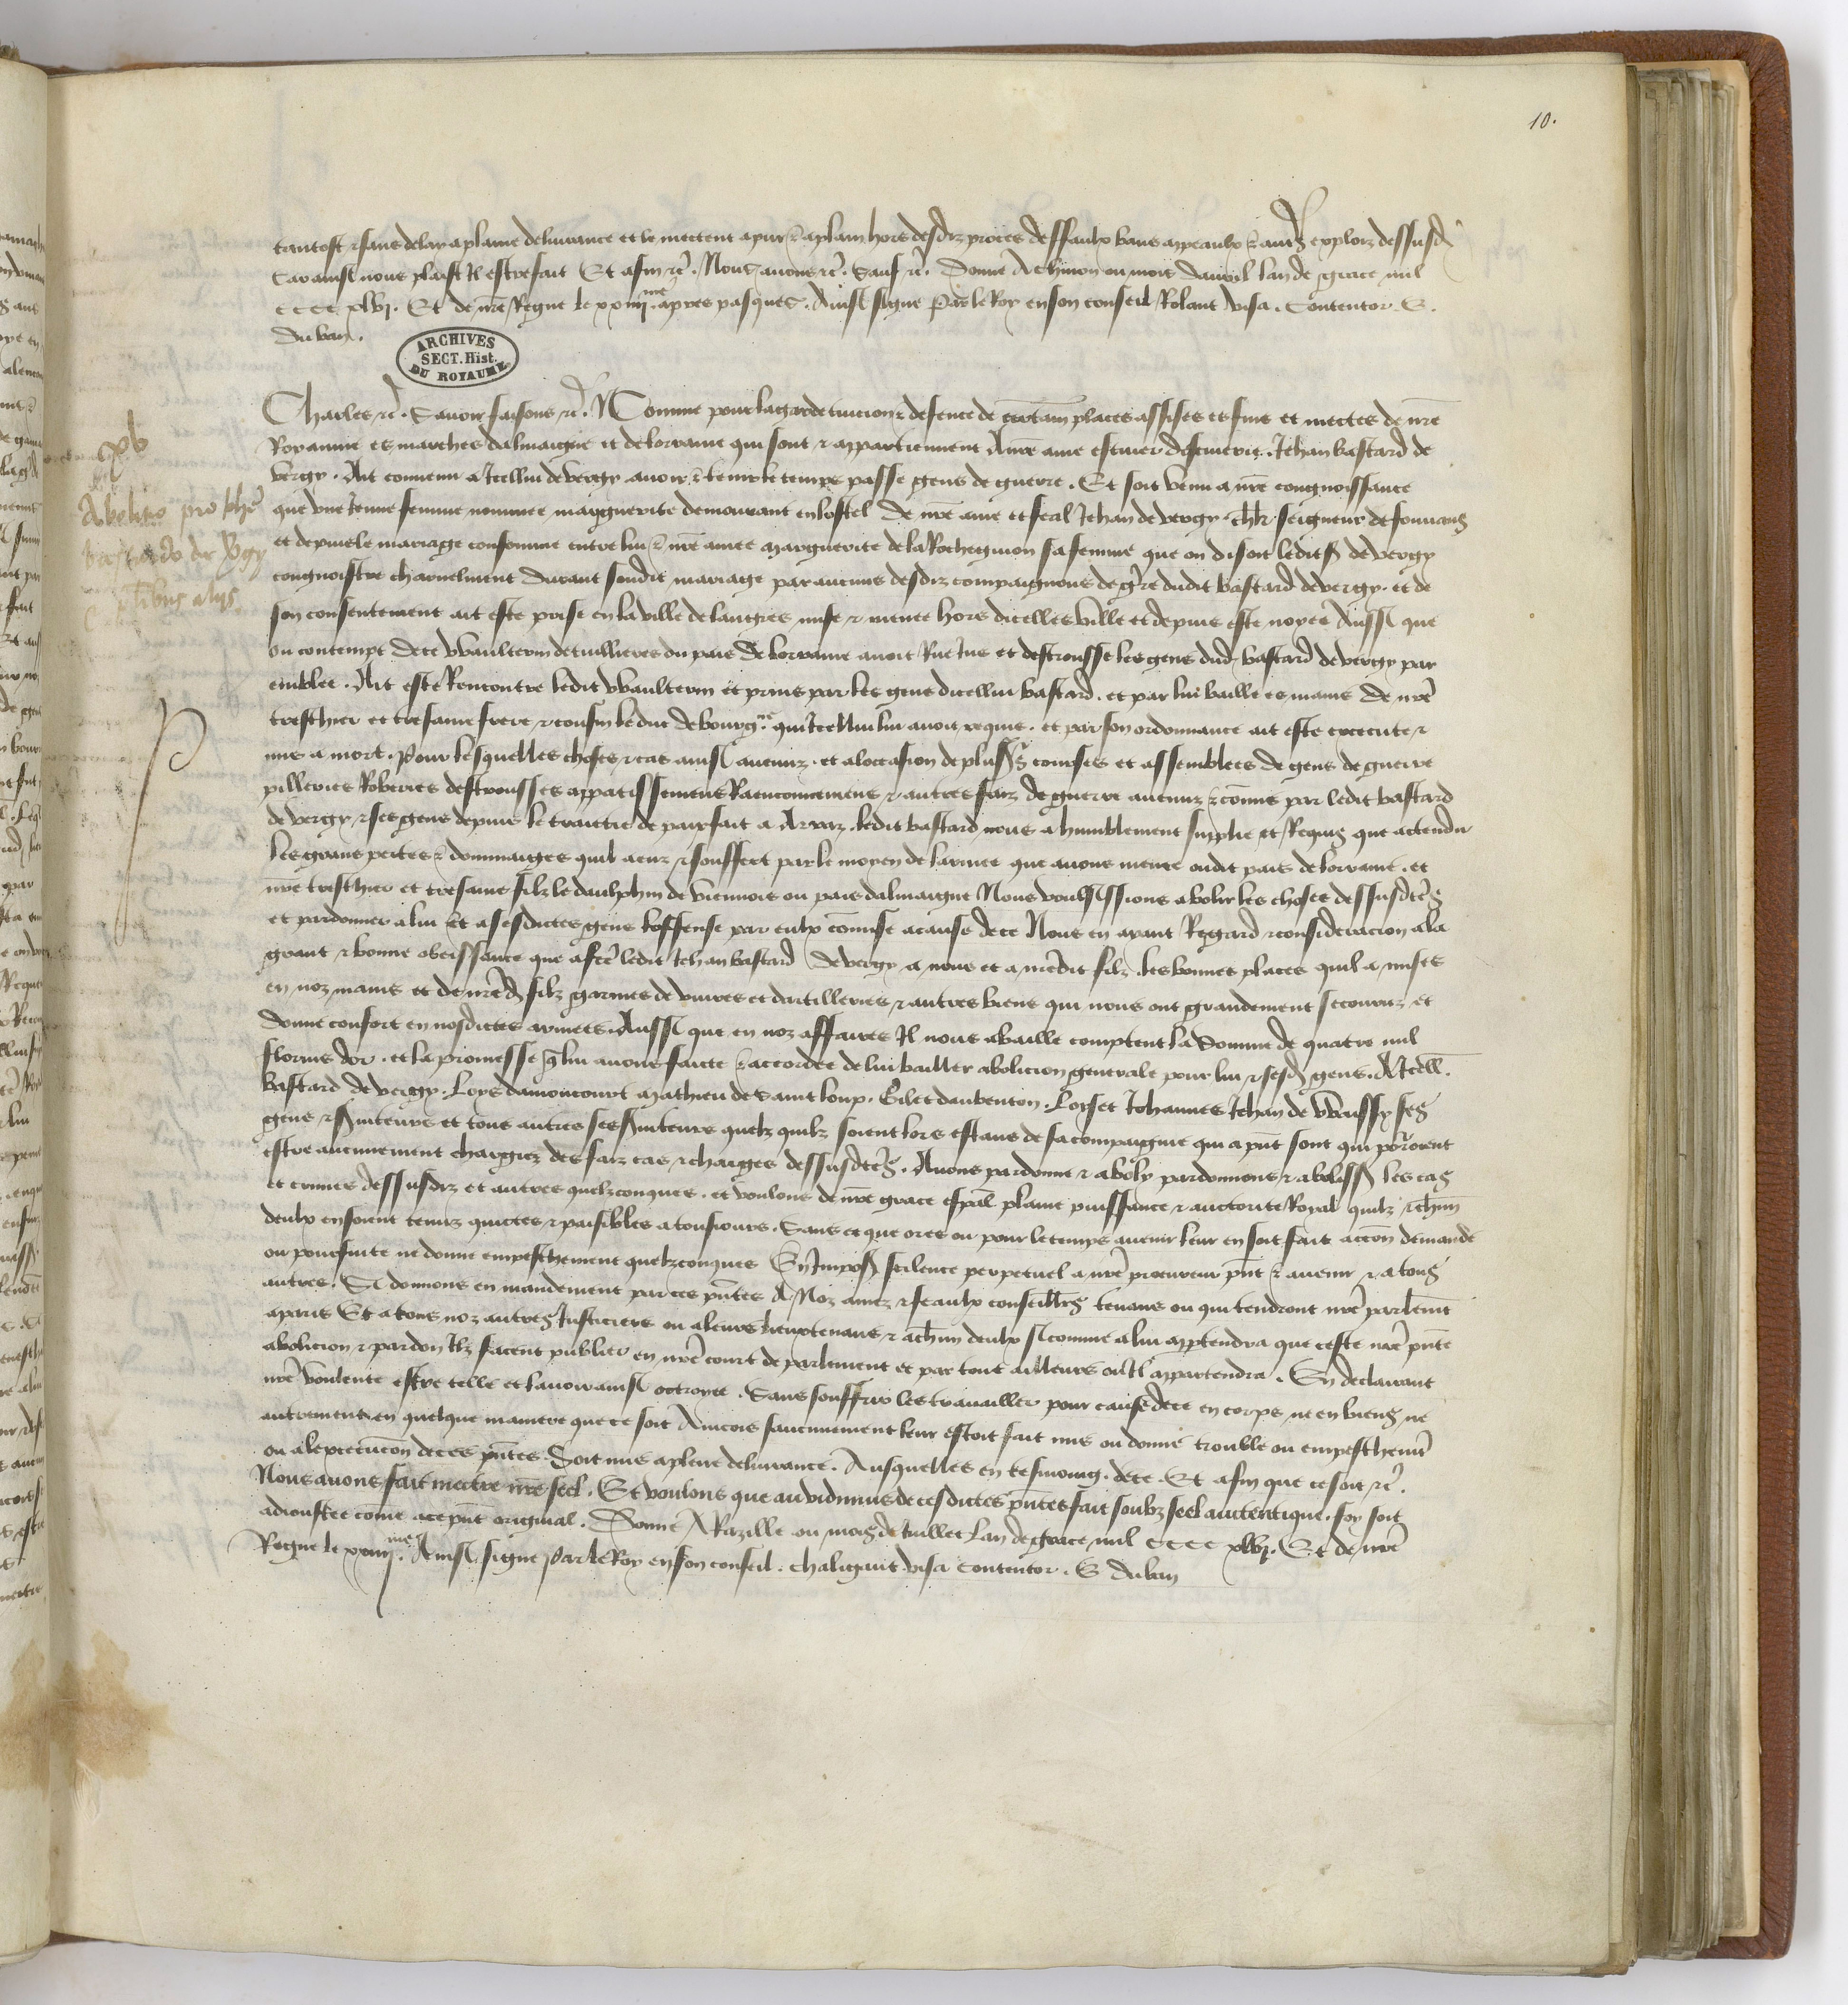 10.
tantost & sans delay a plaine delivrance et le mectent a pur & a plain hors desdiz proces deffaulx bans appeaulx & autrs exploiz dessusd
Car ainsi nous plaist Il estre fait Et afin &c. Nous avons &c. Sauf &c. Donne A Chinon ou mois davril lan de grace mil
CCCC xlvj. Et de nre Regne le xxiiij me apres pasques. Ainsi signe Par le Roy en son conseil Rolant Visa. Contentor. E.
du ban.
ARCHIVES
SECT. Hist.
DU ROYAUME
Charles &c. Savoir faisons &c. Comme pour la garde tuicion & defence de certain places assises es fins et mectes de nre
xv
Royaume es marches dalmaigne et de lorraine qui sont & appartiennent A nre ame escuier descuierie Jehan bastard de
vergy. Ait convenu a Icellui de vergy avoir & tenir le temps passe gens de guerre. Et soit venu a nre congnoissance
Abolitio pro Johe
bastardo de Vergy
& pluribus aliis
que une jeune femme nommee margguerite demourant en lostel de nre ame et feal Jehan de vergy chlr seigneur de fouvans
et depuis le mariage consomme entre lui & nre amee marguerite de la Rocheguion sa femme que on disoit ledit sr de vergy
congnoistre charnelment durant sondit mariage par aucuns desdiz compaignons de grre dudit bastard de vergy. et de
son consentement ait este prise en la ville de langres mise & menee hors dicelles ville et depuis este noyee Aussi que
ou contempt de ce Waulterin de tuillieres ou pais de lorraine avoit Rue jus et destrousse les gens dud bastard de vergy par
emblee. Ait este Rencontre ledit Waulterin et prins par les gens dicellui bastard. et par lui baille es mains de nre
treschier et tresame frere & cousin le duc de bourgne qui Icellui lui avoit requis. et par son ordonnance ait este execute &
mis a mort. Pour lesquelles choses & cas ainsi avenuz. et a loccasion de plusrs courses et assemblees de gens de guerre
pilleries Roberies destrousses appatissemens Raenconnemens & autres faiz de guerre avenuz & comis par ledit bastard
de vergy & ses gens depuis le traictie de paix fait a Arraz. ledit bastard nous a humblement supplie et Requis que actendu
les grans pertes & dommaiges quil a euz & souffert par le moyen de larmee que avons menee oudit pais de lorraine. et
nre treschier et tresame filz le daulphin de viennois ou pais dalmaigne Nous voulsissions abolir les choses dessusdctes
et pardonner a lui et a sesdictes gens loffense par eulx comise a cause de ce Nous en ayant Regard & consideracion a la
grant & bonne obeissance que a fcte ledit Jehan bastard de vergy a nous et a nredit filz. les bonnes places quil a mises
en noz mains et de nred filz garnies de vivres et dartilleries & autres biens qui nous ont grandement secouruz et
donne confort en nosdictes armees. Aussi que en noz affaires Il nous a baille comptent la Somme de quatre mil
florins dor. et la promesse q lui avons faicte & accordee de lui bailler abolicion generale pour lui & sesd gens. A Icell.
bastard de vergy. Loys damoncourt mathieu de saint loup. Gilet daubenton. Loyset Johannes Jehan de Wussy ses
gens & serviteurs et tous autres ses serviteurs quelz quilz soient lors estans de sa compaignie qui a pnt sont qui porroient
estre aucunement chargiez des faiz cas & charges dessusdctes. Avons pardonne & aboly pardonnons & abolissons les cas
et crimes dessusdiz et autres quelzconques. et voulons de nre grace espal plaine puissance & auctorite Royal quilz & chun
deulx en soient tenuz quictes & paisibles a tousiours. Sans ce que ores ou pour le temps avenir leur en soit fait accon demande
ou poursuite ne donne empeschement quelzconques En Imposant scilence perpetuel a nre procureur pnt & avenir & a tous
autres. Si donnons en mandement par ces pntes A Noz amez & feaulx conseillrs tenans ou qui tendront nre parlemt
a paris Et a tous noz autres Justiciers ou a leurs lieuxtenans & a chun deulx si comme a lui apptendra que ceste nre pnte
abolicion & pardon Ilz facent publier en nre court de parlement et par tout ailleurs ou Il appartendra. En declairant
nre voulente estre telle et lavoir ainsi octroyee. Sans souffrir les travailler pour cause de ce en corps ne en biens ne
autrement en quelque maniere que ce soit Aincois saucunement leur estoit fait mis ou donne trouble ou empeschemt
ou alexecucon de ces pntes. Soit mis a pleine delivrance. Ausquelles en tesmoing. de ce. Et afin que ce soit &c.
Nous avons fait mectre nre seel. Et voulons que au vidimus de ces dictes pntes fait soubz seel autentique. foy soit
adioustee come a ce pnt original. Donne A Razille ou mois de Juillet Lan de grace mil CCCC xlvj. Et de nre
Regne le xxiiij me. Ainsi signe Par le Roy en son conseil. Chaligaut. visa contentor. E du ban